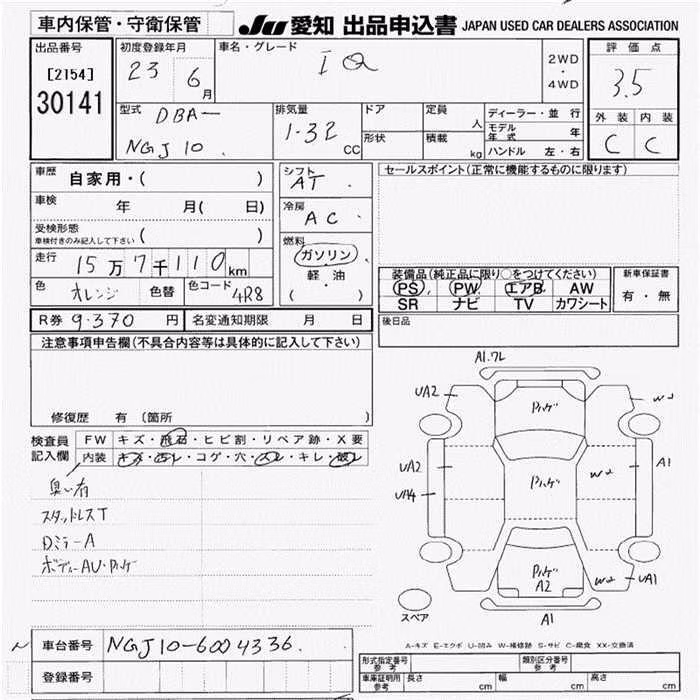 車内保管・守衛保管 JU 愛知 出品申込書 JAPAN USED CAR DEALERS ASSOCIATION
出品番号 初度登録年月 車名・グレード 評価点
[2154] 23 6月 IQ 2WD・4WD 3.5
30141
型式 DBA- 排気量 ドア 定員 人 ディーラー・並行 外装 内装
NGJ10 1.32 CC 形状 積載 kg モデル年式 年 C C
ハンドル 左・右
車歴 自家用・( ) シフト AT セールスポイント(正常に機能するものに限ります)
車検 年 月( 日) 冷房 AC
受検形態 ( )
車検付きのみ記入して下さい
燃料 ガソリン
走行 15万7千110km 軽油
( )
装備品(純正品に限り○をつけてください) 新車保証書
PS PW エアB AW 有・無
SR ナビ TV カワシート
色 オレンジ 色替 色コード 4R8
R券 9.370 円 名変通知期限 月 日 後日品
注意事項申告欄(不具合内容等は具体的に記入して下さい)
修復歴 有 (箇所 )
検査員記入欄 FW キズ・飛石・ヒビ割・リペア跡・X要
内装 キズ・汚レ・コゲ・穴・スレ・キレ・破レ
臭い有
スタットレスT
Dミラー A
ボディーAU・ハゲ
A1.ワレ
UA2
A1
UA2
UA4
UA1
A2
スペア A1
A-キズ E-エクボ U-凹み W-補修跡 S-サビ C-腐食 XX-交換済
車台番号 NGJ10-6004336
登録番号
形式指定番号 参考 類別区分番号 参考
車庫証明用 参考 長さ cm 幅 cm 高さ cm